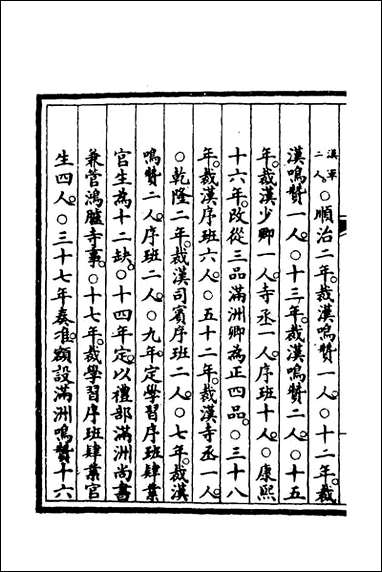 漢軍二人。○順治二年。裁漢鳴贊一人。○十二年。裁
漢鳴贊一人。○十三年。裁漢鳴贊二人。○十五
年。裁漢少卿一人。寺丞一人。序班十人。○康熙
十六年。改從三品滿洲卿為正四品。○三十八
年。裁漢序班六人。○五十二年。裁漢寺丞一人。
○乾隆二年。裁漢司賓序班二人。○七年。裁漢
鳴贊二人。序班二人。○九年。定學習序班肄業
官生為十二缺。○十四年。定以禮部滿洲尚書
兼管鴻臚寺事。○十七年。裁學習序班肄業官
生四人。○三十七年奏准。額設滿洲鳴贊十六